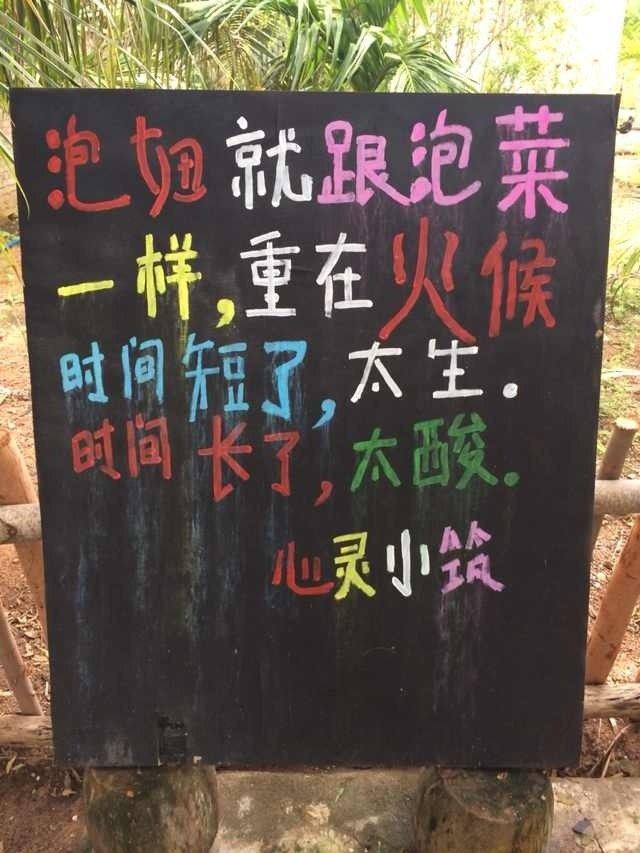 泡妞就跟泡菜
一样,重在火候
时间短了,太生。
时间长了,太酸。
心灵小筑